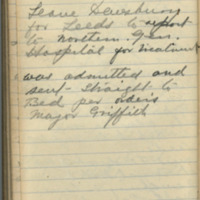 Leave Dewsbury
for Leeds to report
to northern. Gen.
Hospital for treatment
was admitted and
sent straight to
Bed per orders
Major Griffith